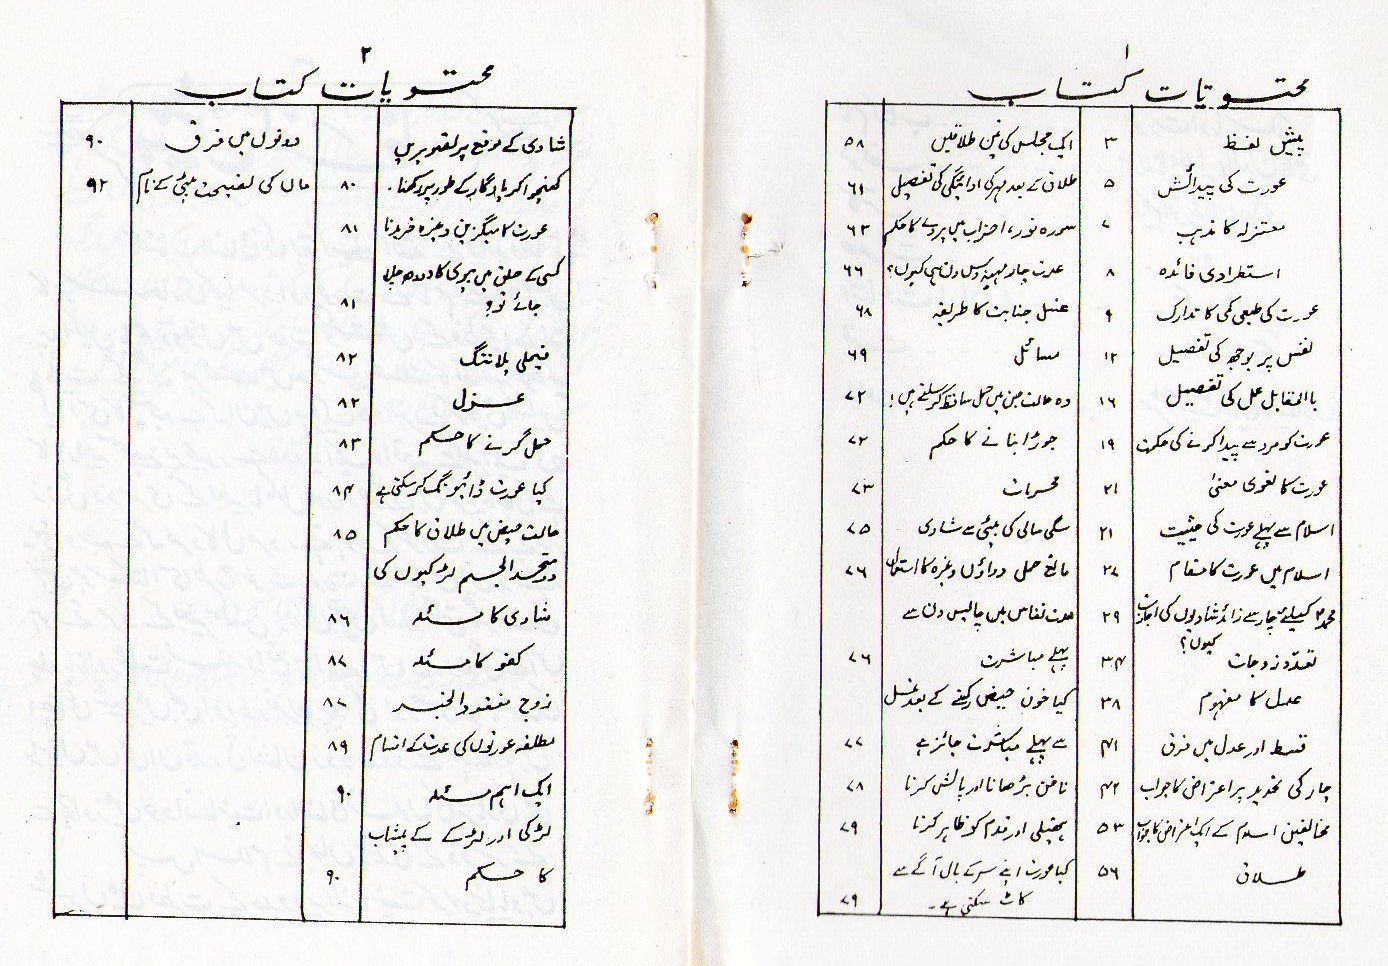 ۱
محتویات کتاب
پیش لفظ ۳
عورت کی پیدائش ۵
معتزلہ کا مذہب ۷
استطرادی فائدہ ۸
عورت کی طبعی کمی کا تدارک ۹
نفس پر بوجھ کی تفصیل ۱۲
باالمقابل عمل کی تفصیل ۱۶
عورت کو مرد سے پیدا کرنے کی حکمت ۱۹
عورت کا لغوی معنیٰ ۲۱
اسلام سے پہلے عورت کی حیثیت ۲۱
اسلام میں عورت کا مقام ۲۷
محمدؐ کیلئے چار سے زائد شادیوں کی اجازت ۲۹
کیوں؟
تعدّد زوجات ۳۴
عدل کا مفہوم ۳۸
قسط اور عدل میں فرق ۴۱
چار کی تحدید پر اعتراض کا جواب ۴۲
مخالفین اسلام کے ایک اعتراض کا جواب ۵۳
طلاق ۵۶
ایک مجلس کی تین طلاقیں ۵۸
طلاق کے بعد مہر کی ادائیگی کی تفصیل ۶۱
سورہ نور، احزاب میں پردے کا حکم ۶۳
عدت چار مہینہ دس دن ہی کیوں؟ ۶۶
غسل جنابت کا طریقہ ۶۸
مسائل ۶۹
وہ حالت جن میں حمل ساقط کر سکتے ہیں! ۷۲
جوڑا بنانے کا حکم ۷۲
محرمات ۷۳
سگی سالی کی بیٹی سے شادی ۷۵
مانع حمل دواؤں وغیرہ کا استعمال ۷۶
مدت نفاس میں چالیس دن سے
پہلے مباشرت ۷۶
کیا خون حیض رکنے کے بعد غسل
سے پہلے مباشرت جائز ہے ۷۷
ناخن بڑھانا اور پالش کرنا ۷۸
ہتھیلی اور قدم کو ظاہر کرنا ۷۹
کیا عورت اپنے سر کے بال آگے سے
کاٹ سکتی ہے۔ ۷۹
۲
محتویات کتاب
شادی کے موقع پر تصویریں
کھنچوا کر یادگار کے طور پر رکھنا۔ ۸۰
عورت کا میگزین وغیرہ خریدنا ۸۱
کسی کے حلق میں بیوی کا دودھ چلا
جائے تو؟ ۸۱
فیملی پلاننگ ۸۲
عزل ۸۲
حمل گرنے کا حکم ۸۳
کیا عورت ڈرائیونگ کر سکتی ہے ۸۴
حالت حیض میں طلاق کا حکم ۸۵
دو متحد الجسم لڑکیوں کی
شادی کا مسئلہ ۸۶
کفو کا مسئلہ ۸۷
زوج مفقود الخبر ۸۷
مطلقہ عورتوں کی عدت کے اقسام ۸۹
ایک اہم مسئلہ ۹۰
لڑکی اور لڑکے کے پیشاب
کا حکم ۹۰
دونوں میں فرق ۹۰
ماں کی نصیحت بیٹی کے نام ۹۲